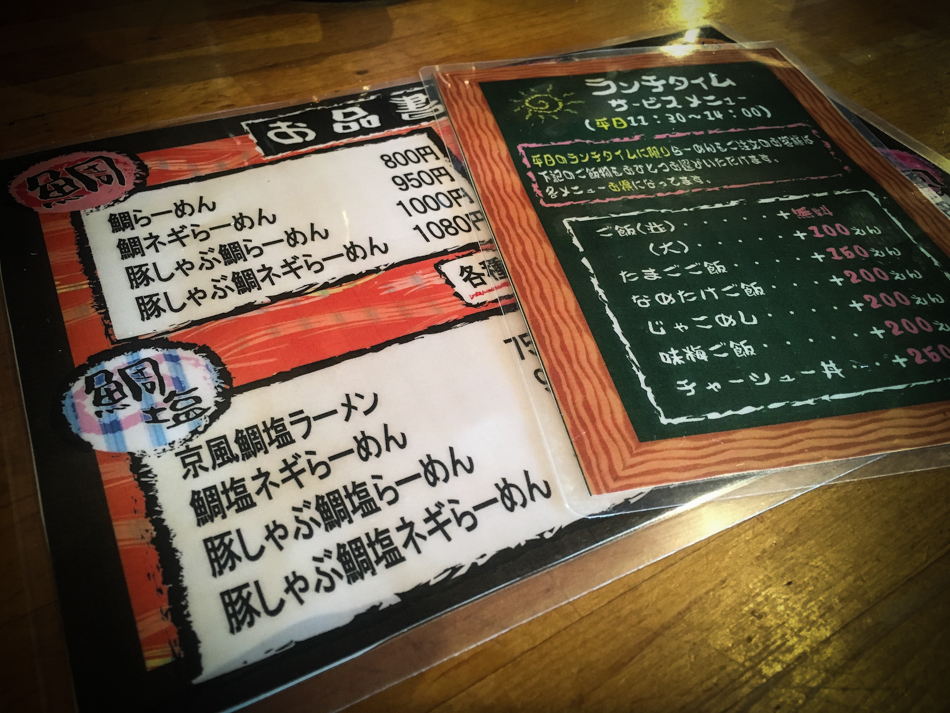 お品書
鯛
鯛らーめん 800円
鯛ネギらーめん 950円
豚しゃぶ鯛らーめん 1000円
豚しゃぶ鯛ネギらーめん 1080円
各種
鯛塩
京風鯛塩ラーメン
鯛塩ネギらーめん
豚しゃぶ鯛塩らーめん
豚しゃぶ鯛塩ネギらーめん
ランチタイム
サービスメニュー
(平日11:30~14:00)
平日のランチタイムに限りらーめんをご注文のお客様は
下記のご飯物をおひとつお選びいただけます。
各メニューお得になってます。
ご飯(並)・・・・+
(大)・・・・・+100えん
たまごご飯・・・・+150えん
なめたけご飯・・・+200えん
じゃこめし・・・・+200えん
味梅ご飯・・・・+200えん
チャーシュー丼・・・+250